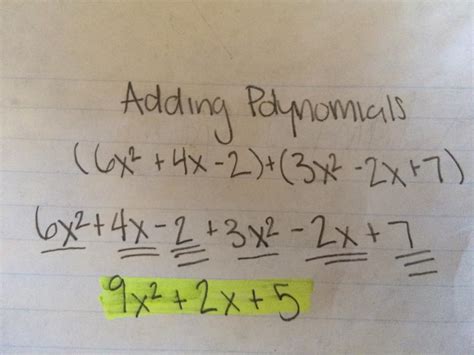 Adding Polynomials
(6x² + 4x - 2) + (3x² - 2x + 7)
6x² + 4x - 2 + 3x² - 2x + 7
9x² + 2x + 5